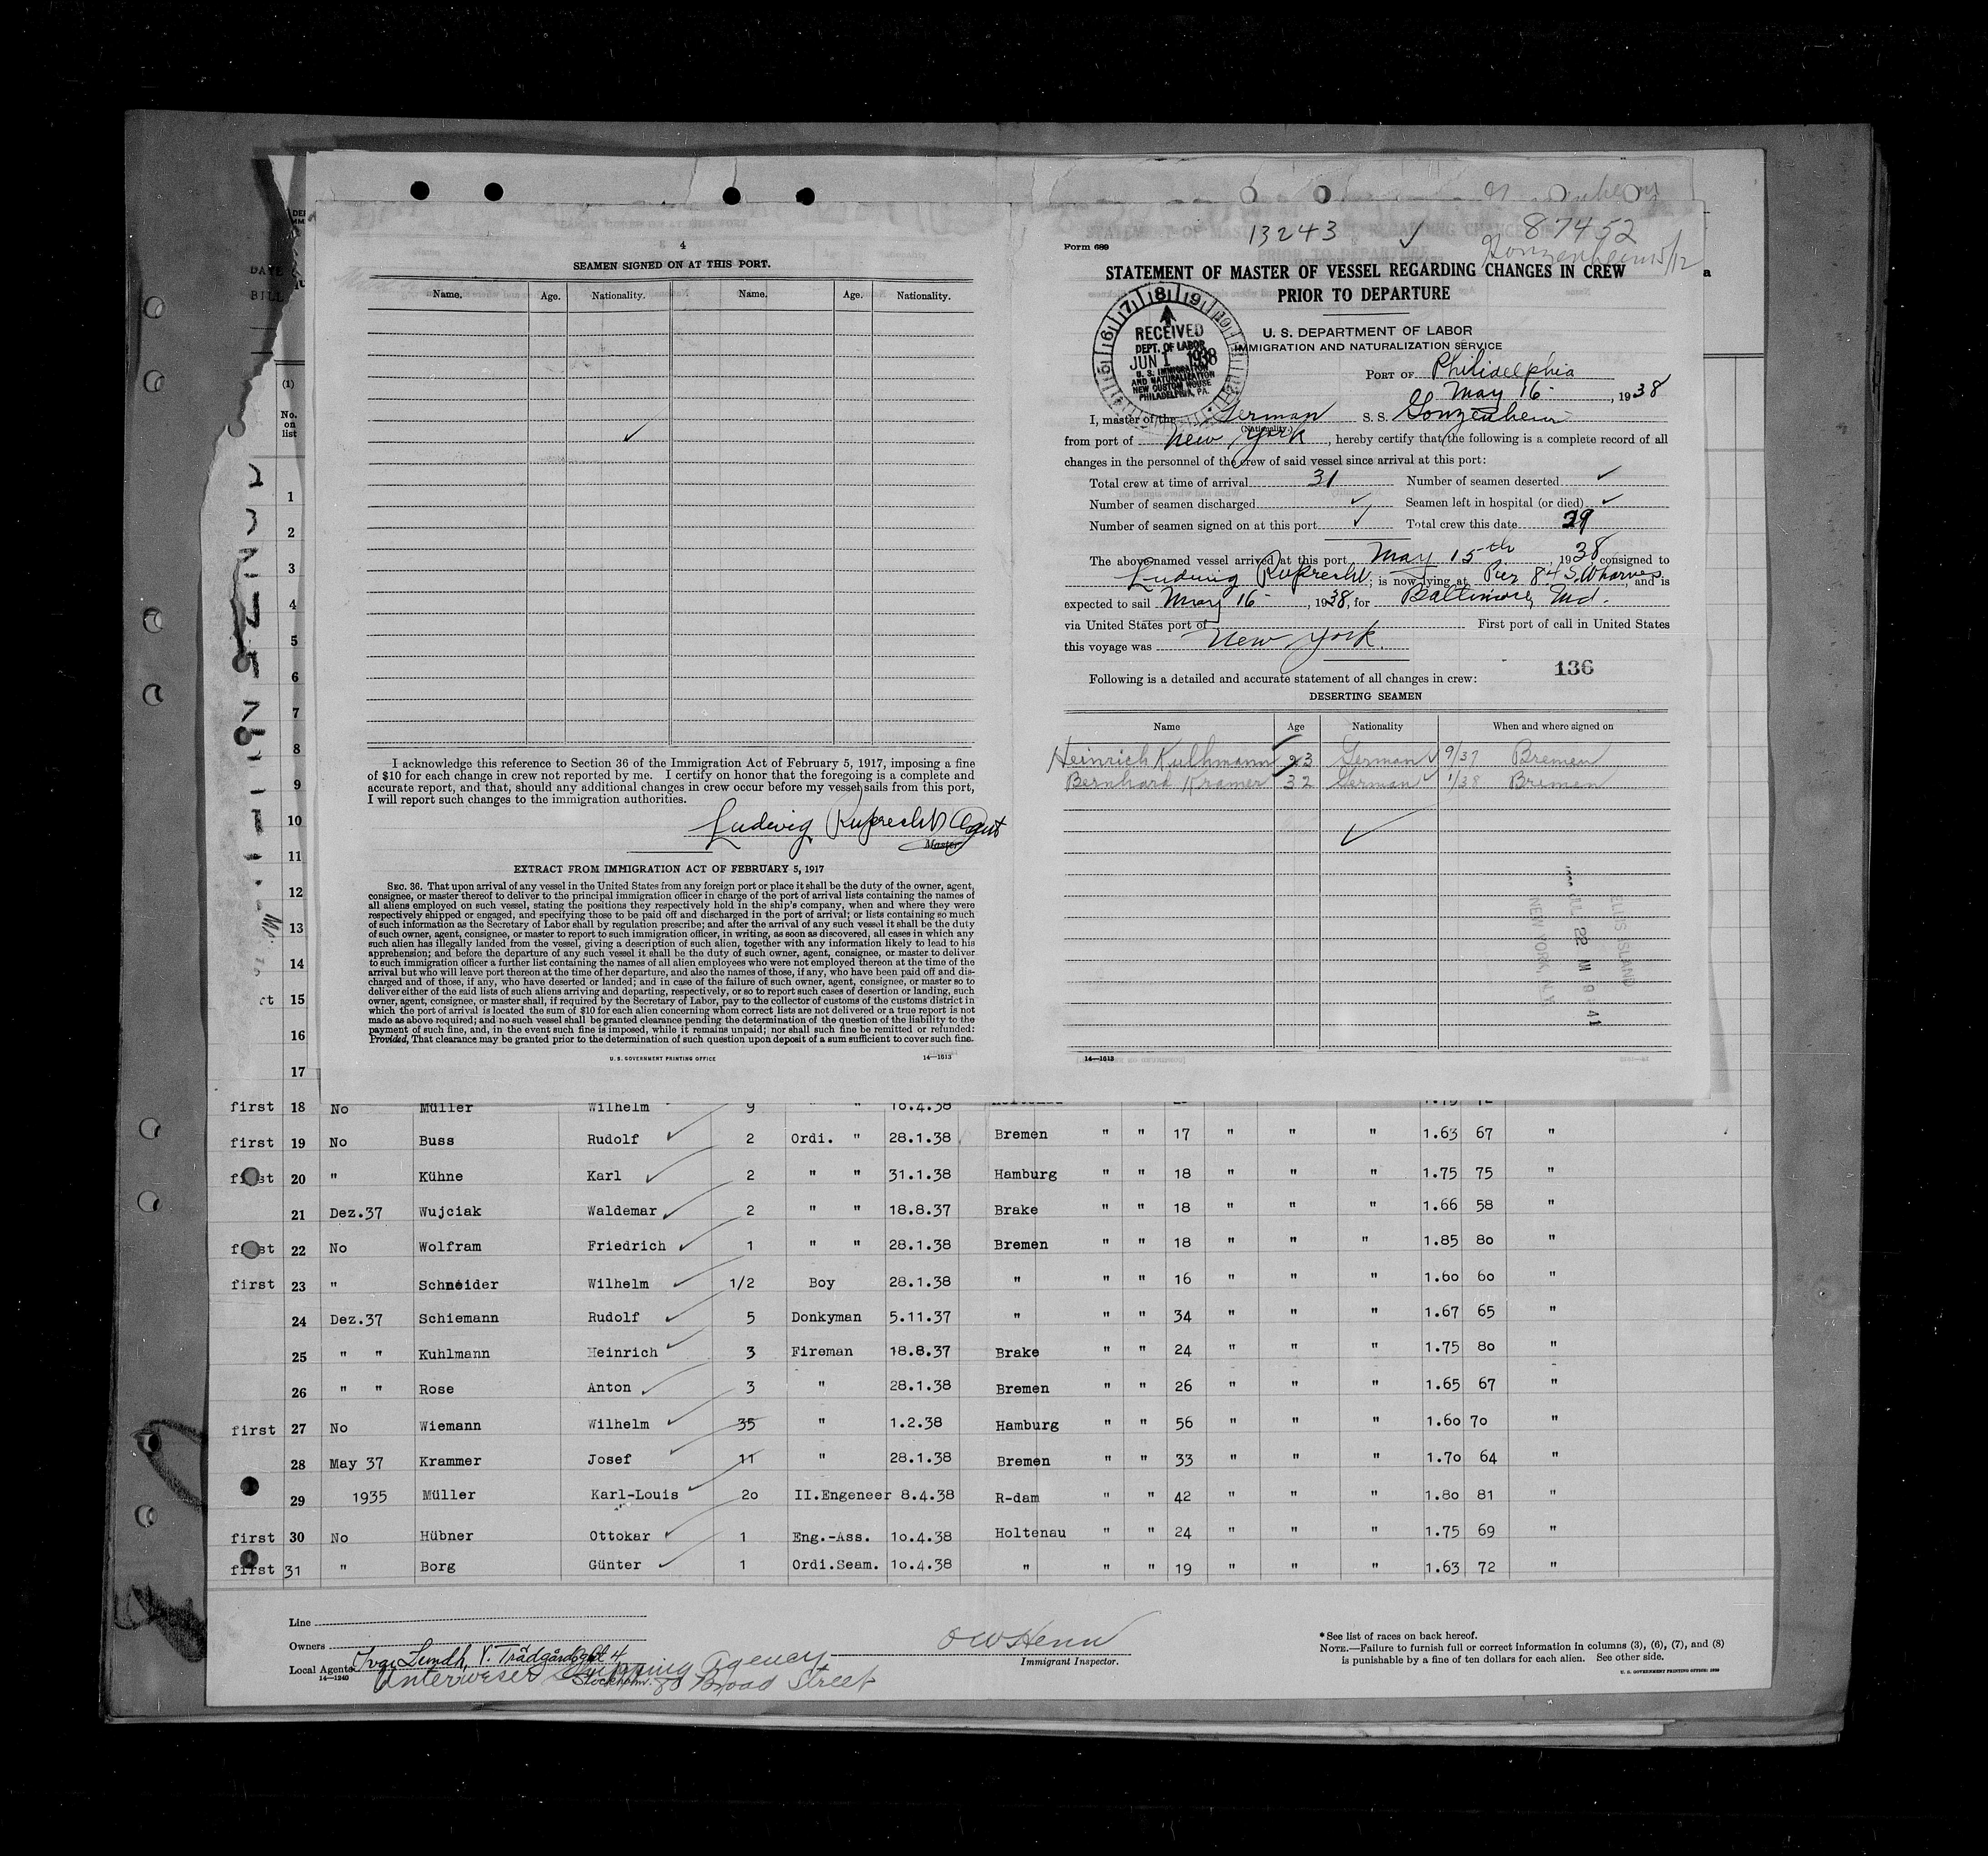 4
SEAMEN SIGNED ON AT THIS PORT.
Name. Age. Nationality. Name. Age. Nationality.
I acknowledge this reference to Section 36 of the Immigration Act of February 5, 1917, imposing a fine
of $10 for each change in crew not reported by me. I certify on honor that the foregoing is a complete and
accurate report, and that, should any additional changes in crew occur before my vessel sails from this port,
I will report such changes to the immigration authorities.
Ludwig Ruprecht Agent
Master
EXTRACT FROM IMMIGRATION ACT OF FEBRUARY 5, 1917
SEC. 36. That upon arrival of any vessel in the United States from any foreign port or place it shall be the duty of the owner, agent,
consignee, or master thereof to deliver to the principal immigration officer in charge of the port of arrival lists containing the names of
all aliens employed on such vessel, stating the positions they respectively hold in the ship's company, when and where they were
respectively shipped or engaged, and specifying those to be paid off and discharged in the port of arrival; or lists containing so much
of such information as the Secretary of Labor shall by regulation prescribe; and after the arrival of any such vessel it shall be the duty
of such owner, agent, consignee, or master to report to such immigration officer, in writing, as soon as discovered, all cases in which any
such alien has illegally landed from the vessel, giving a description of such alien, together with any information likely to lead to his
apprehension; and before the departure of any such vessel it shall be the duty of such owner, agent, consignee, or master to deliver
to such immigration officer a further list containing the names of all alien employees who were not employed thereon at the time of the
arrival but who will leave port thereon at the time of her departure, and also the names of those, if any, who have been paid off and dis-
charged and of those, if any, who have deserted or landed; and in case of the failure of such owner, agent, consignee, or master so to
deliver either of the said lists of such aliens arriving and departing, respectively, or so to report such cases of desertion or landing, such
owner, agent, consignee, or master shall, if required by the Secretary of Labor, pay to the collector of customs of the customs district in
which the port of arrival is located the sum of $10 for each alien concerning whom correct lists are not delivered or a true report is not
made as above required; and no such vessel shall be granted clearance pending the determination of the question of the liability to the
payment of such fine, and, in the event such fine is imposed, while it remains unpaid; nor shall such fine be remitted or refunded:
Provided, That clearance may be granted prior to the determination of such question upon deposit of a sum sufficient to cover such fine.
U. S. GOVERNMENT PRINTING OFFICE 14—1613
13243 87452
Form 689
STATEMENT OF MASTER OF VESSEL REGARDING CHANGES IN CREW
PRIOR TO DEPARTURE
U. S. DEPARTMENT OF LABOR
IMMIGRATION AND NATURALIZATION SERVICE
RECEIVED
DEPT. OF LABOR
JUN 1 1938
U. S. IMMIGRATION
AND NATURALIZATION
NEW CUSTOM HOUSE
PHILADELPHIA, PA.
PORT OF Philidelphia
May 16 , 1938
I, master of the German S. S. Gonzenheim
(Nationality.)
from port of New York , hereby certify that the following is a complete record of all
changes in the personnel of the crew of said vessel since arrival at this port:
Total crew at time of arrival 31 Number of seamen deserted
Number of seamen discharged Seamen left in hospital (or died)
Number of seamen signed on at this port Total crew this date 29
The above-named vessel arrived at this port May 15th , 1938 consigned to
Ludwig Ruprecht, is now lying at Pier 84 S. Wharves, and is
expected to sail May 16 , 1938, for Baltimore, Md.
via United States port of First port of call in United States
this voyage was New York.
136
Following is a detailed and accurate statement of all changes in crew:
DESERTING SEAMEN
Name Age Nationality When and where signed on
Heinrich Kulhmann 23 German 9/37 Bremen
Bernhard Kramer 32 German 1/38 Bremen
ELLIS ISLAND
NEW YORK, N.Y.
14—1613
(1)
No.
on
list
1
2
3
4
5
6
7
8
9
10
11
12
13
14
15
16
17
first 18 No Müller Wilhelm 9 " " 10.4.38
first 19 No Buss Rudolf 2 Ordi. " 28.1.38 Bremen " " 17 " " " 1.63 67 "
first 20 " Kühne Karl 2 " " 31.1.38 Hamburg " " 18 " " " 1.75 75 "
21 Dez.37 Wujciak Waldemar 2 " " 18.8.37 Brake " " 18 " " " 1.66 58 "
first 22 No Wolfram Friedrich 1 " " 28.1.38 Bremen " " 18 " " " 1.85 80 "
first 23 " Schneider Wilhelm 1/2 Boy 28.1.38 " " " 16 " " " 1.60 60 "
24 Dez.37 Schiemann Rudolf 5 Donkyman 5.11.37 " " " 34 " " " 1.67 65 "
25 " " Kuhlmann Heinrich 3 Fireman 18.8.37 Brake " " 24 " " " 1.75 80 "
26 " " Rose Anton 3 " 28.1.38 Bremen " " 26 " " " 1.65 67 "
first 27 No Wiemann Wilhelm 35 " 1.2.38 Hamburg " " 56 " " " 1.60 70 "
28 May 37 Krammer Josef 11 " 28.1.38 Bremen " " 33 " " " 1.70 64 "
29 1935 Müller Karl-Louis 20 II.Engeneer 8.4.38 R-dam " " 42 " " " 1.80 81 "
first 30 No Hübner Ottokar 1 Eng.-Ass. 10.4.38 Holtenau " " 24 " " " 1.75 69 "
first 31 " Borg Günter 1 Ordi.Seam. 10.4.38 " " " 19 " " " 1.63 72 "
Line
Owners
Ivar Lundh, V. Trädgårdsgt 4
Stockholm.
Local Agents Unterweser Shipping Agency
80 Broad Street
14—1240
O W Henn
Immigrant Inspector.
*See list of races on back hereof.
NOTE.—Failure to furnish full or correct information in columns (3), (6), (7), and (8)
is punishable by a fine of ten dollars for each alien. See other side.
U. S. GOVERNMENT PRINTING OFFICE: 1939